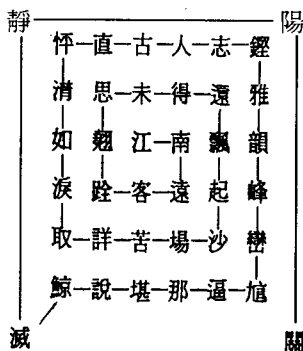 靜 陽
怦直古人志鏗
思未得還雅
如翹江南飄韻
淚跧客遠起峰
取詳苦場沙巒
鯨說堪那逼
滅 關